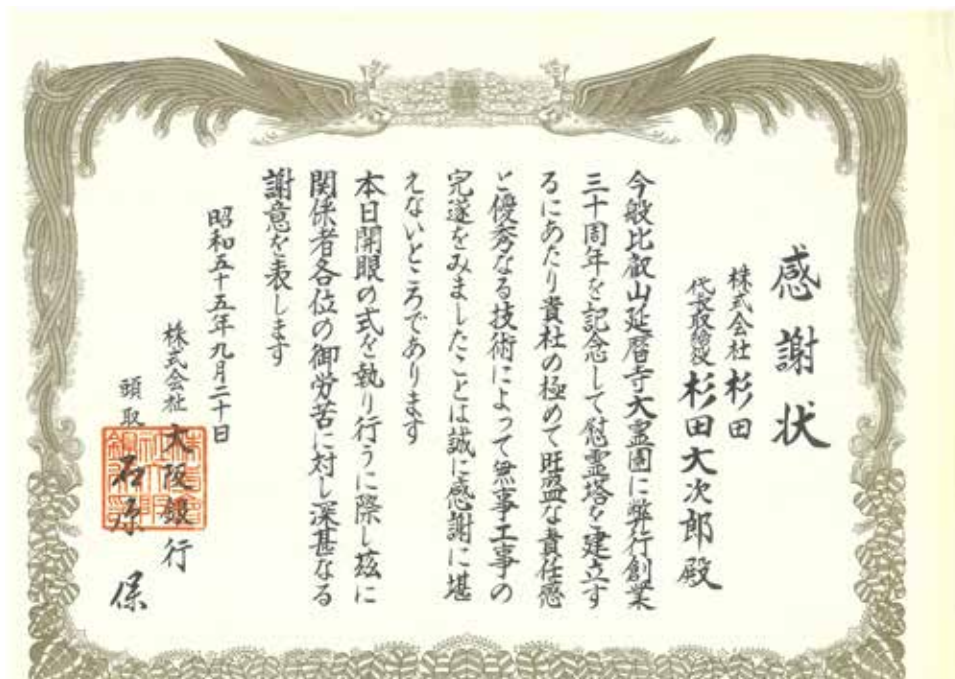 感謝状
株式会社杉田
代表取締役 杉田大次郎殿
今般比叡山延暦寺大霊園に弊行創業
三十周年を記念して慰霊塔を建立す
るにあたり貴社の極めて旺盛な責任感
と優秀なる技術によって無事工事の
完遂をみましたことは誠に感謝に堪
えないところであります
本日開眼の式を執り行うに際し茲に
関係者各位の御労苦に対し深甚なる
謝意を表します
昭和五十五年九月二十日
株式会社大阪銀行
頭取 石原 保